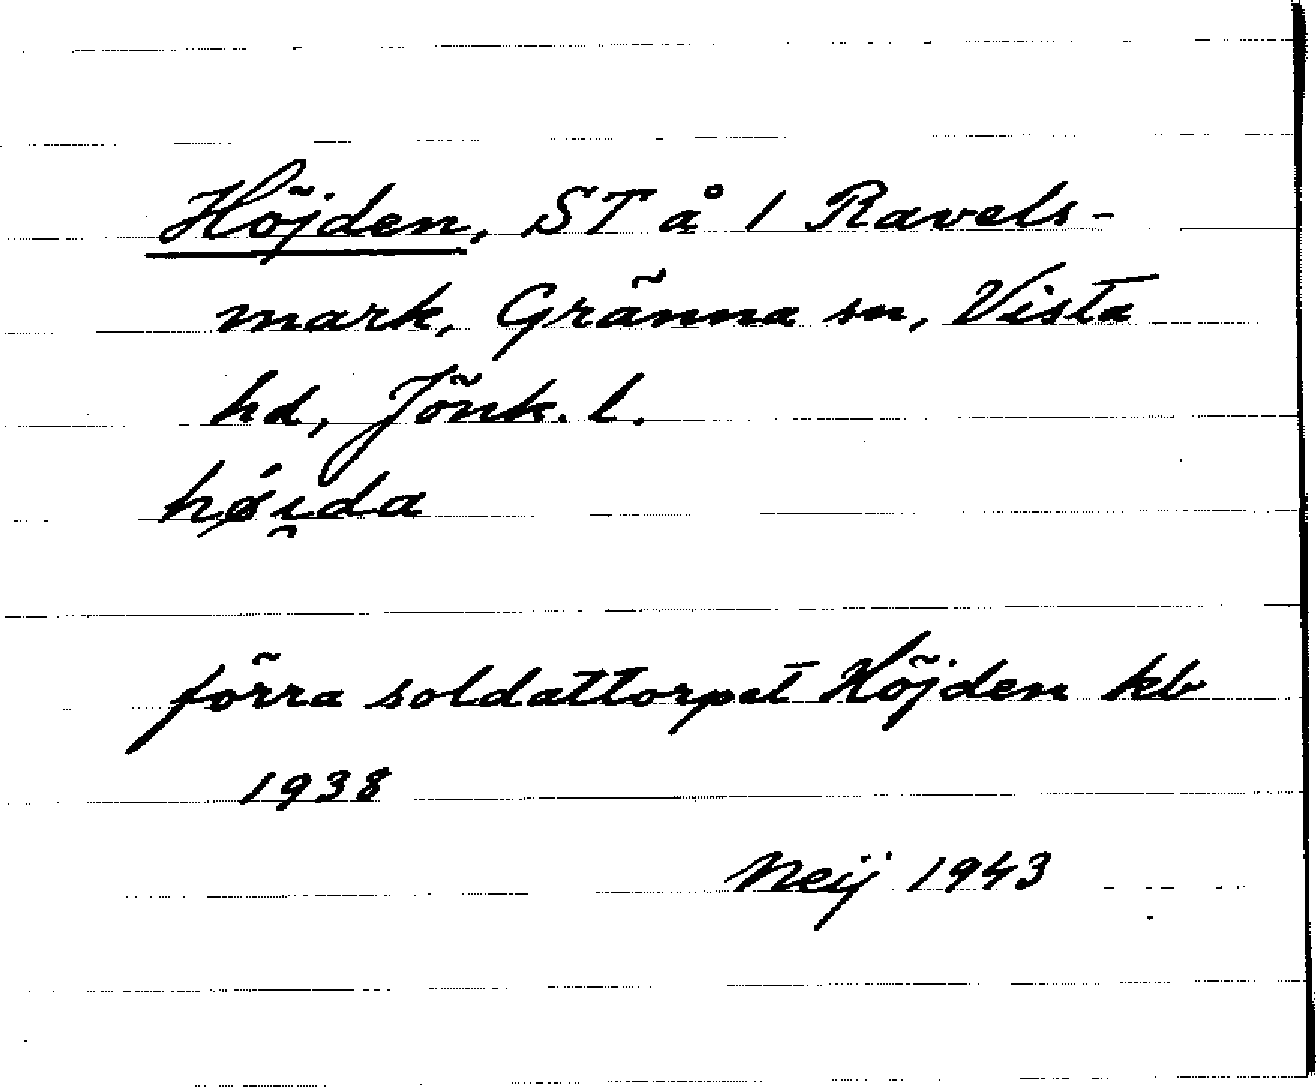 Höjden, ST å 1 Ravels-
mark, Gränna sn, Vista
hd, Jönk. l.
hǿi̯da
förra soldattorpet Höjden kb
1938
Neij 1943